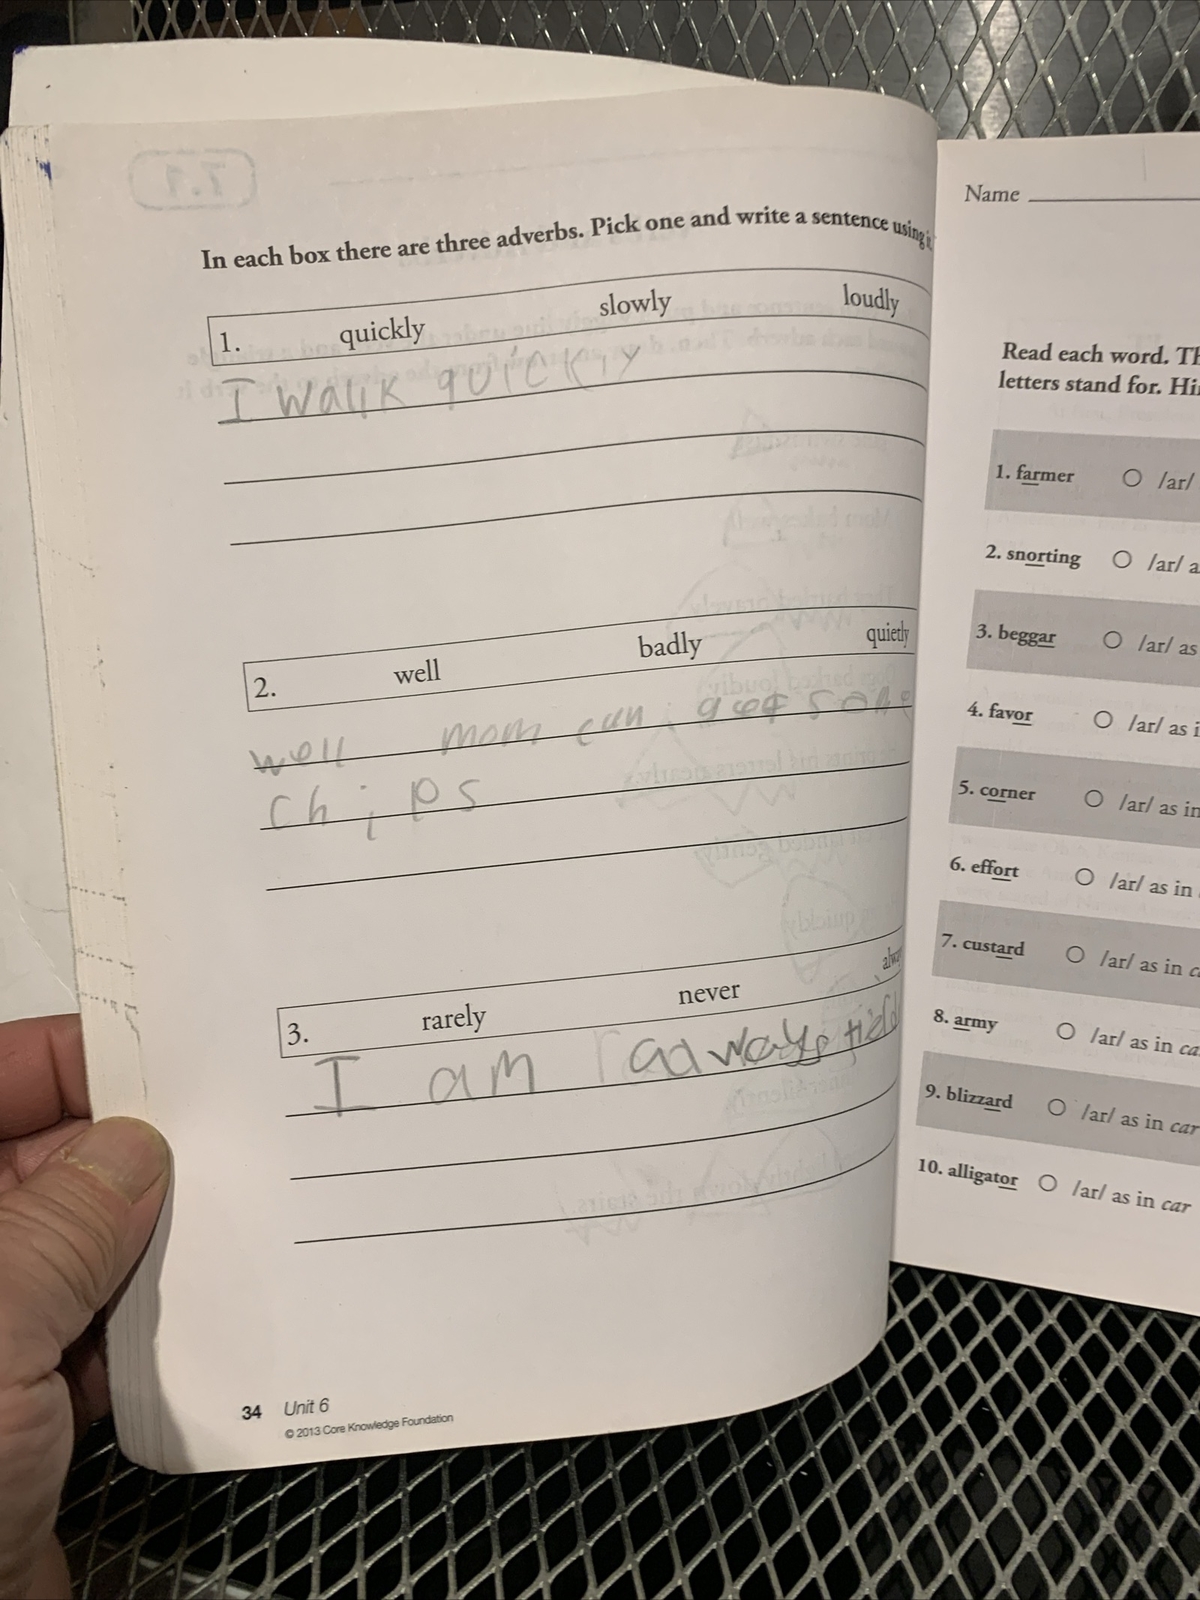 In each box there are three adverbs. Pick one and write a sentence using it.
1. quickly slowly loudly
I walk quickly
2. well badly quietly
well mom can i get some
chips
3. rarely never
I am always
34 Unit 6
© 2013 Core Knowledge Foundation
Name
Read each word. Th
letters stand for. Hi
1. farmer /ar/
2. snorting /ar/ a
3. beggar /ar/ as
4. favor /ar/ as i
5. corner /ar/ as in
6. effort /ar/ as in
7. custard /ar/ as in c
8. army /ar/ as in ca
9. blizzard /ar/ as in car
10. alligator /ar/ as in car